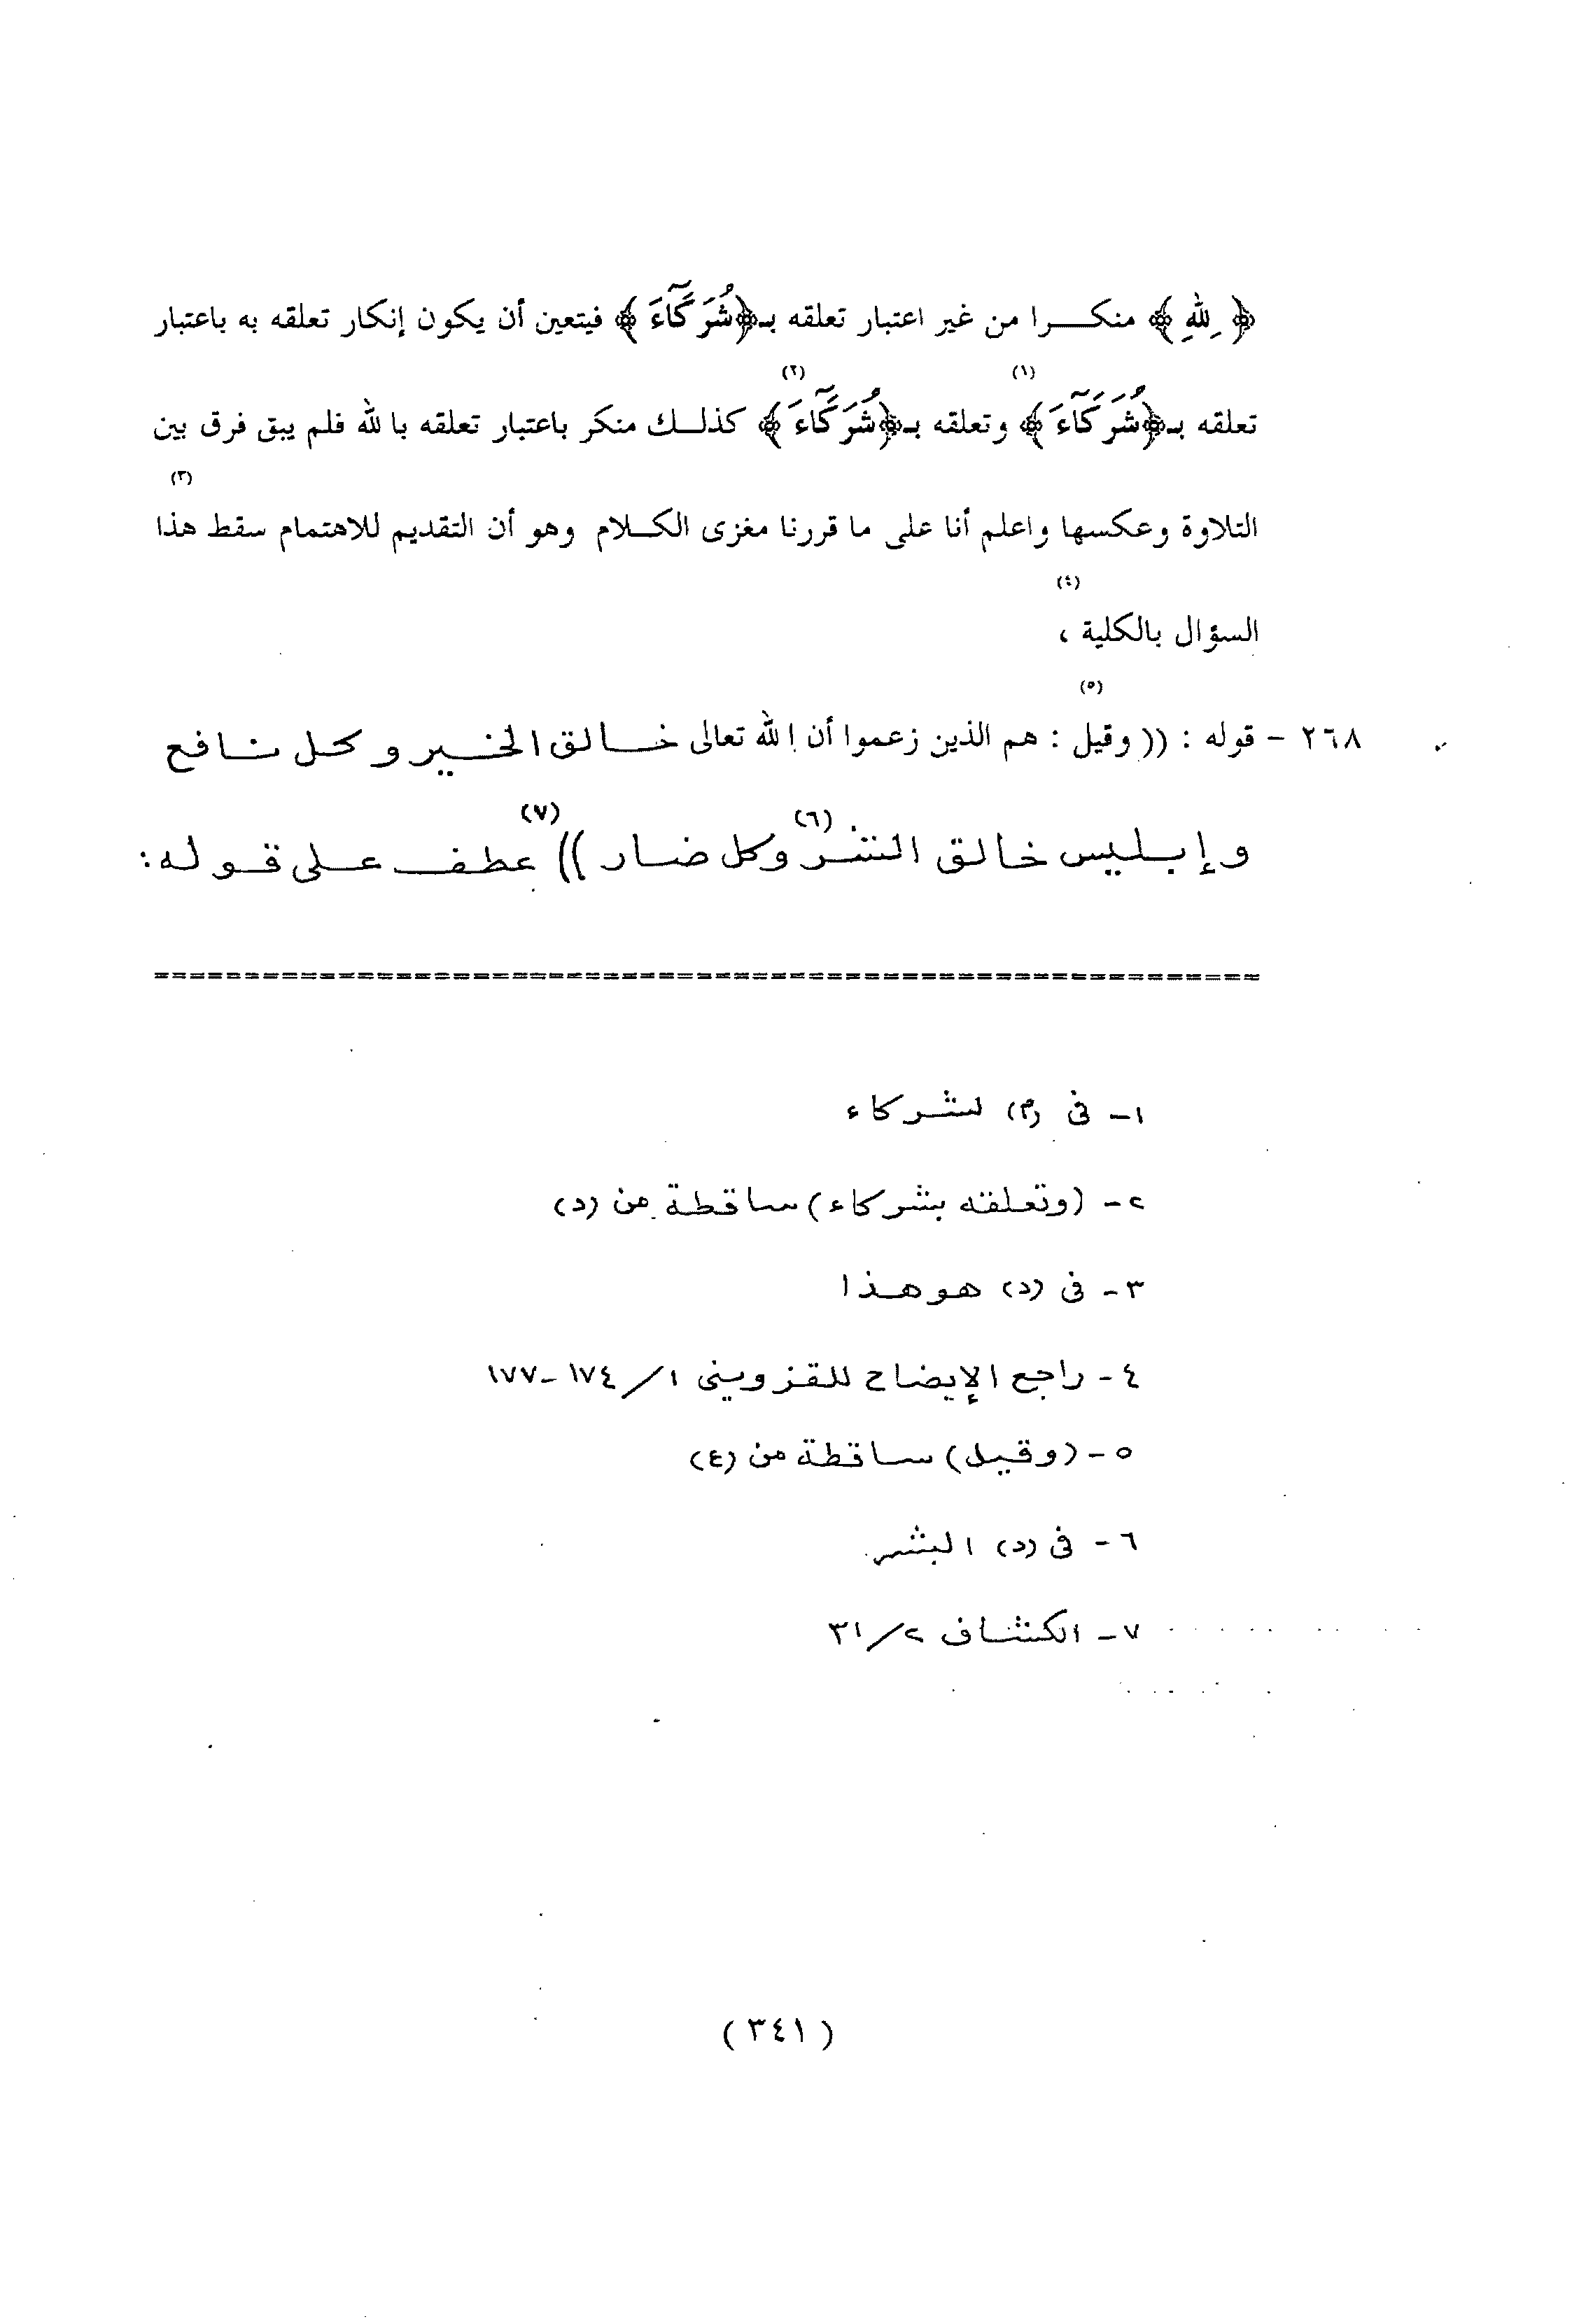 ﴿ لِلَّهِ ﴾ منكرا من غير اعتبار تعلقه بـ﴿شُرَكَآءَ ﴾ فيتعين أن يكون إنكار تعلقه به باعتبار
(١) (٢)
تعلقه بـ﴿شُرَكَآءَ ﴾ وتعلقه بـ﴿شُرَكَآءَ ﴾ كذلك منكر باعتبار تعلقه بالله فلم يبق فرق بين
(٣)
التلاوة وعكسها واعلم أنا على ما قررنا مغزى الكلام وهو أن التقديم للاهتمام سقط هذا
(٤)
السؤال بالكلية ،
(٥)
٢٦٨ - قوله : (( وقيل : هم الذين زعموا أن الله تعالى خالق الخير وكل نافع
(٦) (٧)
وإبليس خالق الشر وكل ضار )) عطف على قوله :
============================================================
١- فى (م) لشركاء
٢- (وتعلقه بشركاء) ساقطة من (د)
٣- فى (د) هو هذا
٤- راجع الإيضاح للقزوينى ١/ ١٧٤-١٧٧
٥- (وقيل) ساقطة من (ع)
٦- فى (د) البشر
٧- الكشاف ٢/ ٣١
( ٣٤١ )